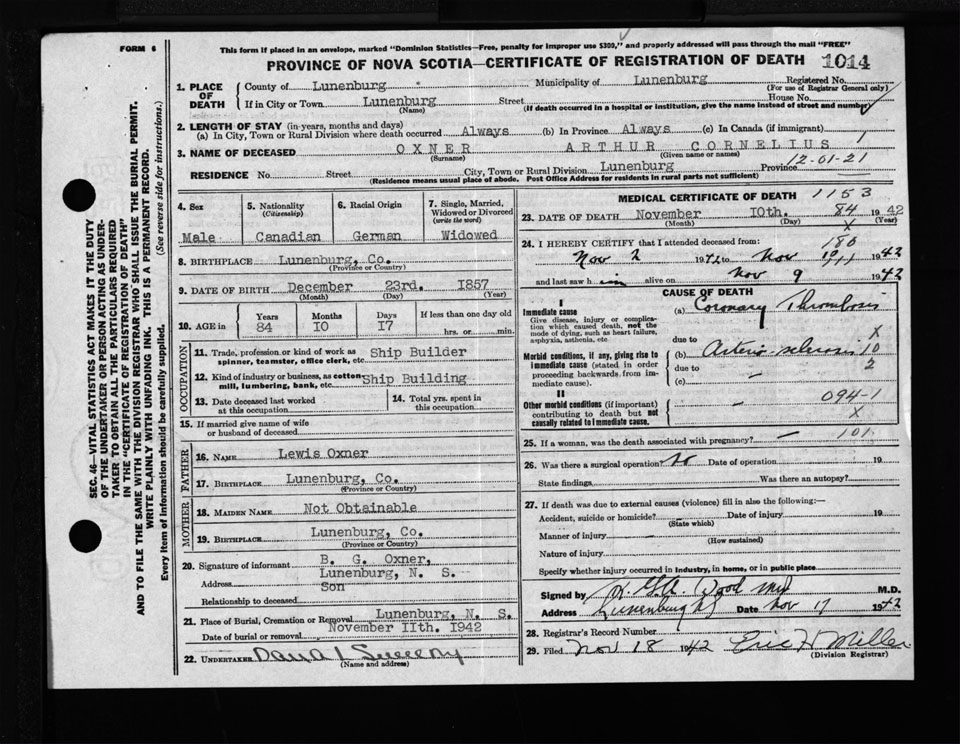 FORM 6
This form if placed in an envelope, marked "Dominion Statistics—Free, penalty for improper use $300," and properly addressed will pass through the mail "FREE"
PROVINCE OF NOVA SCOTIA—CERTIFICATE OF REGISTRATION OF DEATH 1014
SEC. 46—VITAL STATISTICS ACT MAKES IT THE DUTY
OF THE UNDERTAKER OR PERSON ACTING AS UNDER-
TAKER TO OBTAIN ALL THE PARTICULARS REQUIRED
IN THE "CERTIFICATE OF REGISTRATION OF DEATH"
AND TO FILE THE SAME WITH THE DIVISION REGISTRAR WHO SHALL ISSUE THE BURIAL PERMIT.
WRITE PLAINLY WITH UNFADING INK. THIS IS A PERMANENT RECORD.
Every item of information should be carefully supplied. (See reverse side for instructions.)
1. PLACE OF DEATH
County of Lunenburg Municipality of Lunenburg Registered No.
(For use of Registrar General only)
If in City or Town Lunenburg Street House No.
(Name) (If death occurred in a hospital or institution, give the name instead of street and number)
2. LENGTH OF STAY (in years, months and days)
(a) In City, Town or Rural Division where death occurred Always (b) In Province Always (c) In Canada (if immigrant)
3. NAME OF DECEASED OXNER ARTHUR CORNELIUS
(Surname) (Given name or names)
12-01-21
RESIDENCE No. Street City, Town or Rural Division Lunenburg Province
(Residence means usual place of abode. Post Office Address for residents in rural parts not sufficient)
4. Sex
Male
5. Nationality
(Citizenship)
Canadian
6. Racial Origin
German
7. Single, Married, Widowed or Divorced
(write the word)
Widowed
8. BIRTHPLACE Lunenburg, Co.
(Province or Country)
9. DATE OF BIRTH December 23rd. 1857
(Month) (Day) (Year)
10. AGE in
Years Months Days If less than one day old
84 10 17 hrs. or min.
OCCUPATION
11. Trade, profession or kind of work as spinner, teamster, office clerk, etc. Ship Builder
12. Kind of industry or business, as cotton mill, lumbering, bank, etc. Ship Building
13. Date deceased last worked at this occupation
14. Total yrs. spent in this occupation
15. If married give name of wife or husband of deceased
FATHER
16. NAME Lewis Oxner
17. BIRTHPLACE Lunenburg, Co.
(Province or Country)
MOTHER
18. MAIDEN NAME Not Obtainable
19. BIRTHPLACE Lunenburg, Co.
(Province or Country)
20. Signature of informant B. G. Oxner,
Address Lunenburg, N. S.
Relationship to deceased Son
21. Place of Burial, Cremation or Removal Lunenburg, N. S.
Date of burial or removal November 11th. 1942
22. UNDERTAKER
(Name and address)
MEDICAL CERTIFICATE OF DEATH 1153
23. DATE OF DEATH November 10th. 84 1942
(Month) (Day) (Year)
X
24. I HEREBY CERTIFY that I attended deceased from:
Nov 2 1942 to Nov 1942
and last saw him alive on Nov 9 1942
CAUSE OF DEATH
I
Immediate cause
Give disease, injury or complication which caused death, not the mode of dying, such as heart failure, asphyxia, asthenia, etc
(a) Coronary Thrombosis
due to X
Morbid conditions, if any, giving rise to immediate cause (stated in order proceeding backwards from immediate cause).
(b) Arterio-sclerosis 10
due to 2
(c) —
II
Other morbid conditions (if important) contributing to death but not causally related to immediate cause.
— 094-1
X
25. If a woman, was the death associated with pregnancy? — 101
26. Was there a surgical operation? No Date of operation 19
State findings Was there an autopsy?
27. If death was due to external causes (violence) fill in also the following:—
Accident, suicide or homicide? Date of injury 19
(State which)
Manner of injury
(How sustained)
Nature of injury
Specify whether injury occurred in industry, in home, or in public place
Signed by Wood M.D.
Address Lunenburg NS Date Nov 17 1942
28. Registrar's Record Number
29. Filed Nov 18 1942 Eric H Miller
(Division Registrar)